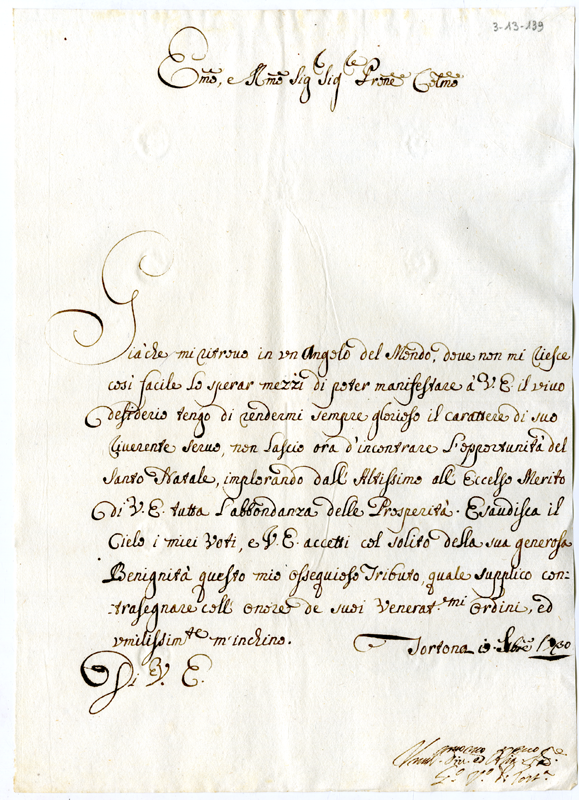 3-13-139
Emo, e Rmo Sig Sig Prone Colmo
Già che mi ritrovo in vn Angolo del Mondo, dove non mi riesce
così facile lo sperar mezzi di poter manifestare à V. E. il vivo
desiderio tengo di rendermi sempre glorioso il carattere di suo
riverente servo, non lascio ora d'incontrare l'opportunità del
Santo Natale, implorando dall Altissimo all Eccelso Merito
di V. E. tutta l'abbondanza delle Prosperità. Esaudisca il
Cielo i miei Voti, e V. E. accetti col solito della sua generosa
Benignità questo mio ossequioso Tributo, quale supplico con-
-trasegnare coll onore de suoi Venerat.mi Ordini, ed
vmilissimte m'inchino. Tortona
Di V. E.